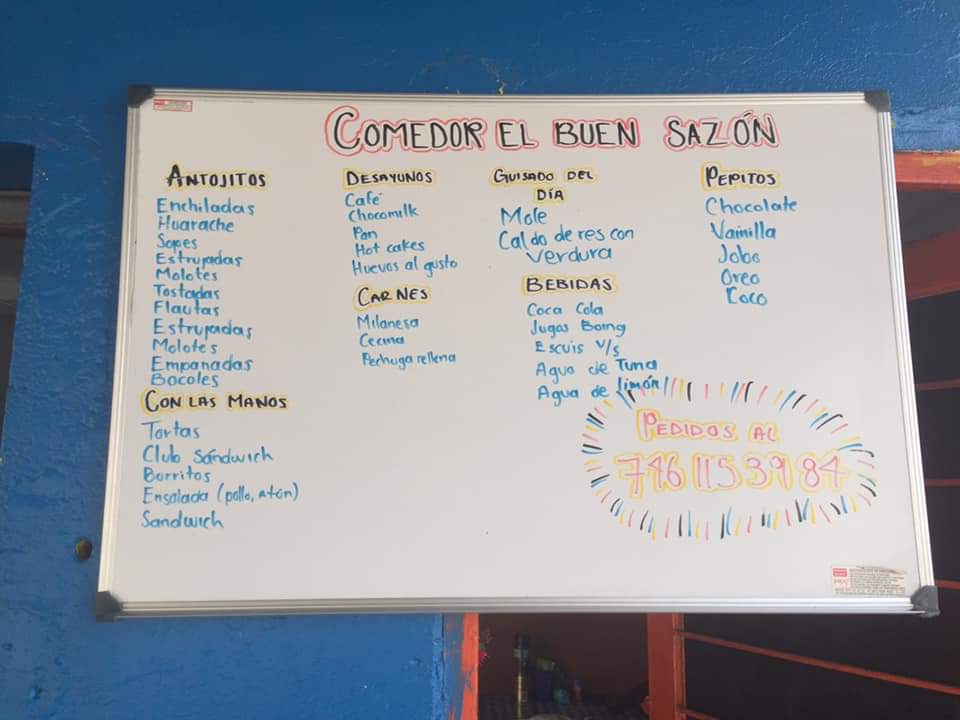 COMEDOR EL BUEN SAZÓN
ANTOJITOS
Enchiladas
Huarache
Sopes
Estrujadas
Molotes
Tostadas
Flautas
Estrujadas
Molotes
Empanadas
Bocoles
CON LAS MANOS
Tortas
Club Sándwich
Borritos
Ensalada (pollo, atún)
Sandwich
DESAYUNOS
Café
Chocomilk
Pan
Hot cakes
Huevos al gusto
CARNES
Milanesa
Cecina
Pechuga rellena
GUISADO DEL
DÍA
Mole
Caldo de res con
verdura
BEBIDAS
Coca Cola
Jugos Boing
Escuis V/s
Agua de Tuna
Agua de limón
PEPITOS
Chocolate
Vainilla
Jobo
Oreo
Coco
PEDIDOS AL
746 115 39 84